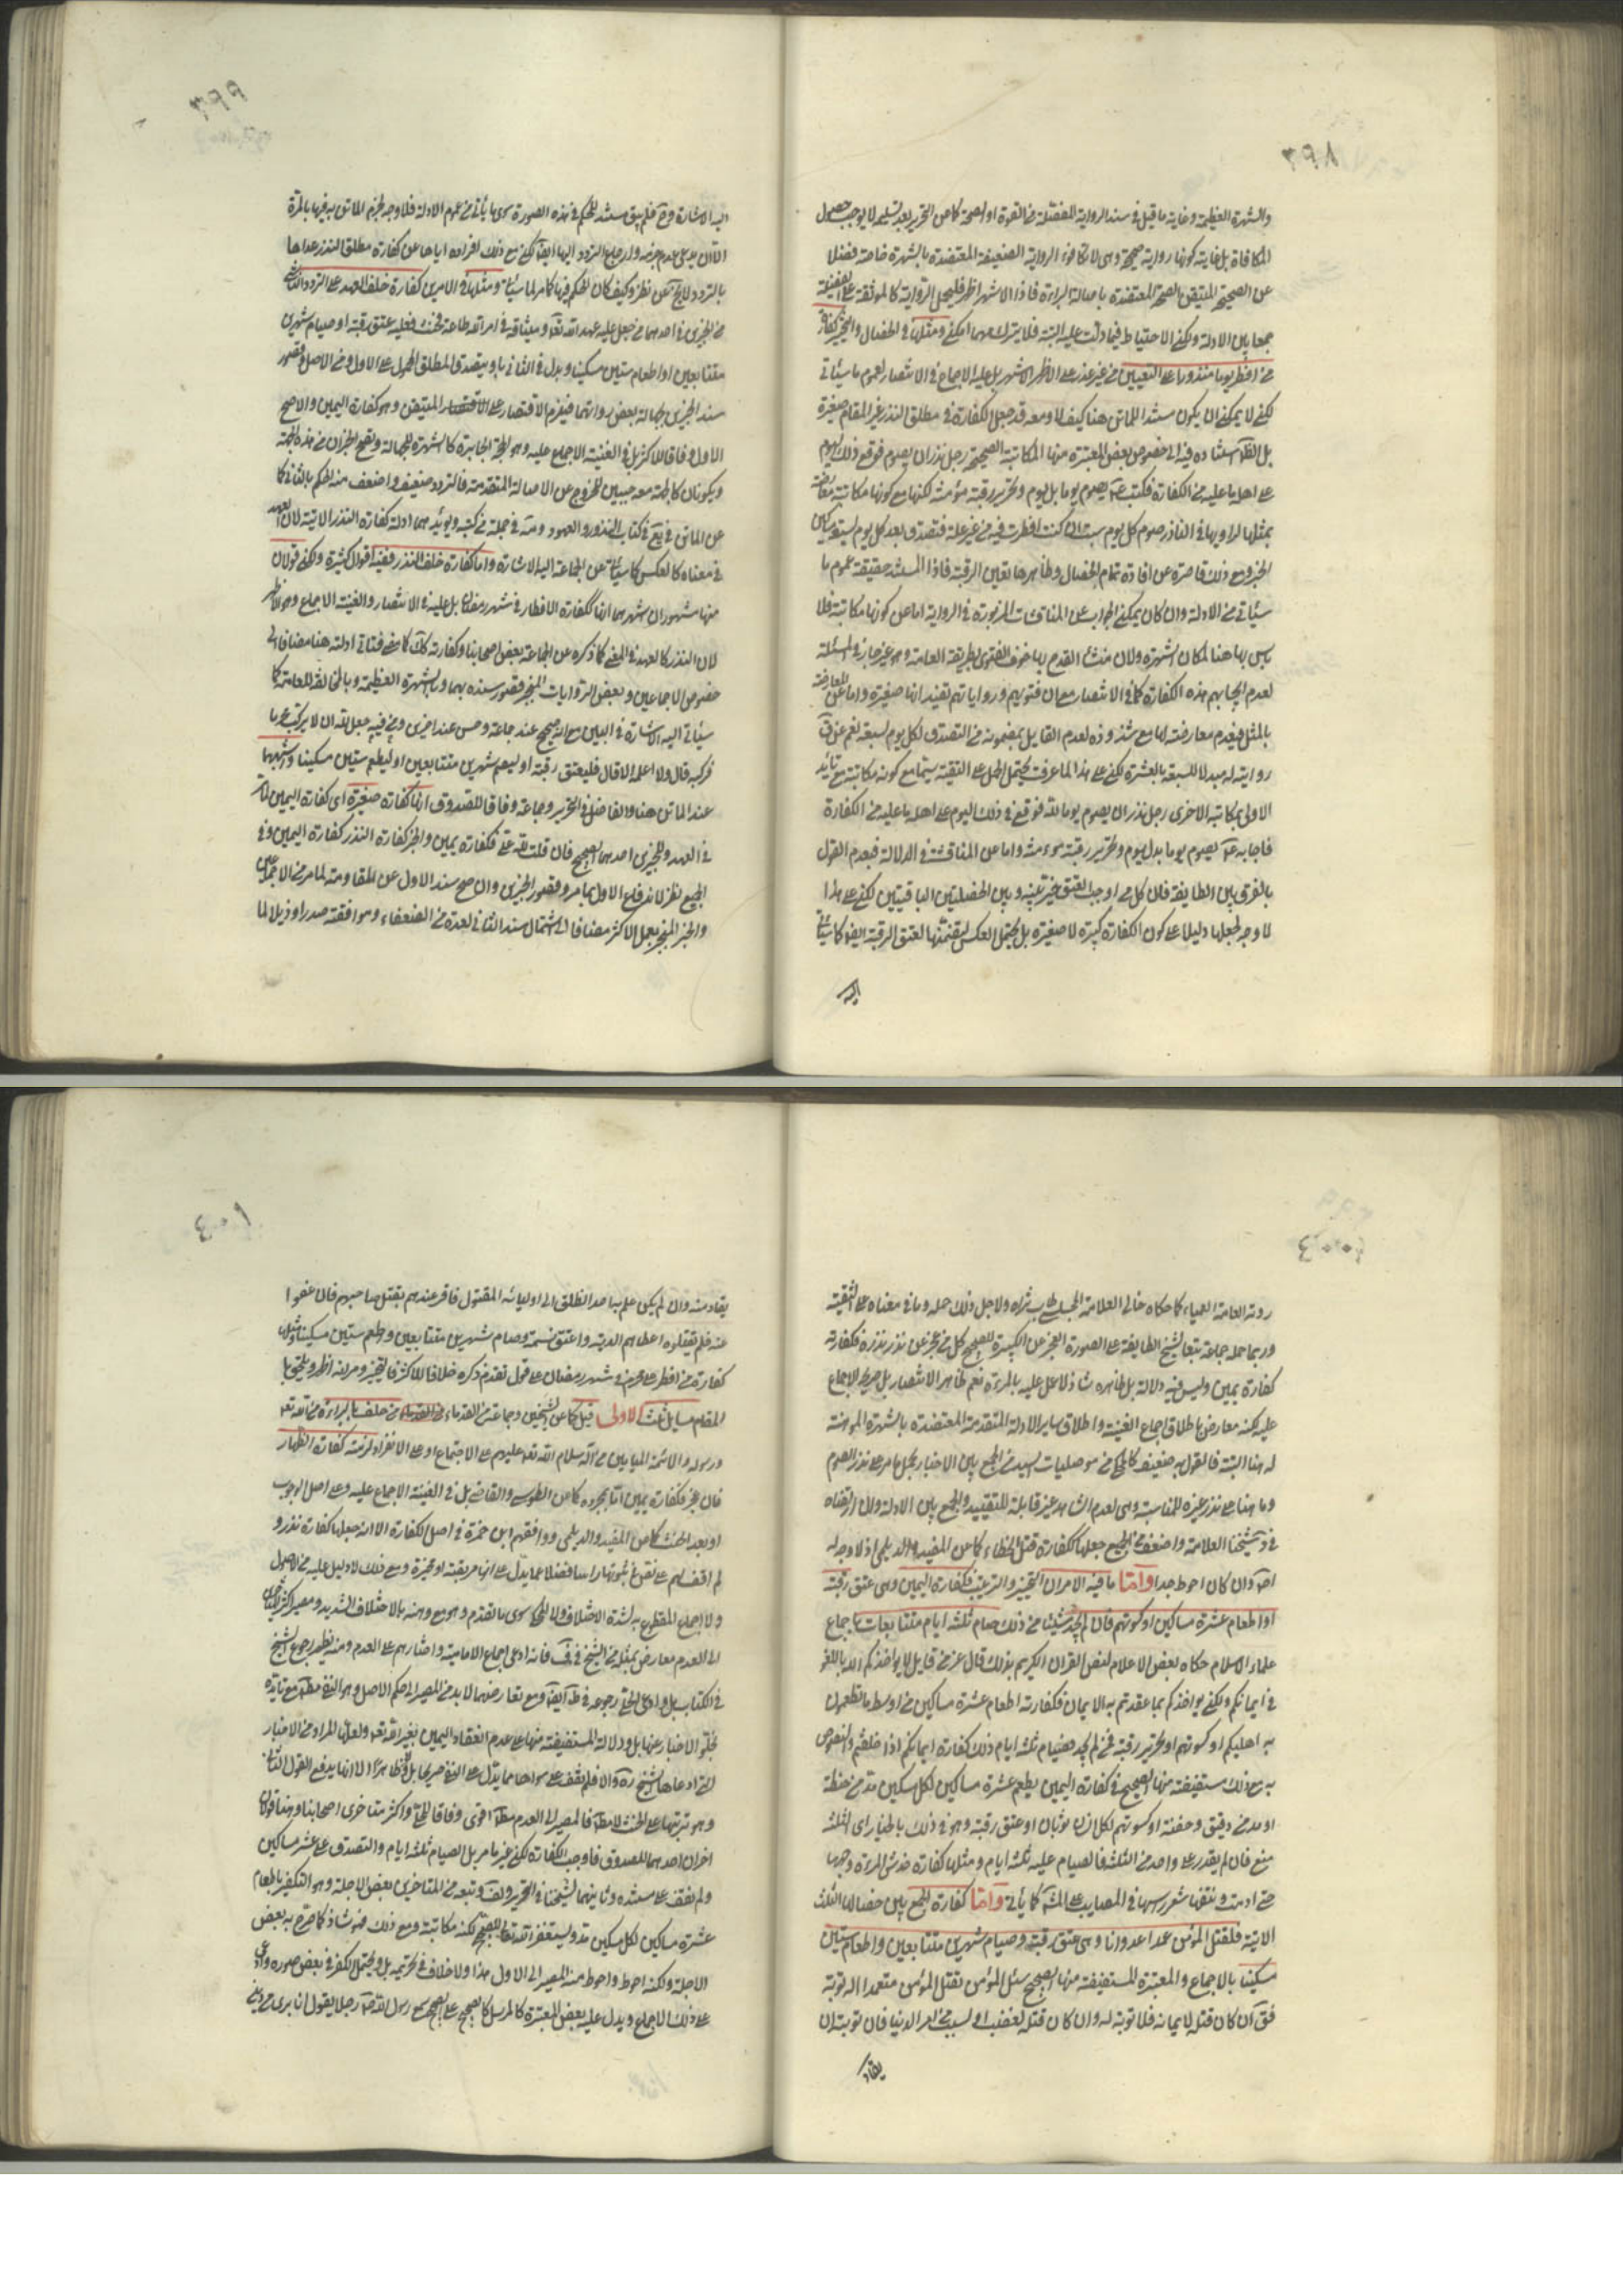 ٣٩٨
والشهرة العظيمة وغاية ما قيل في سند الرواية المفصّلة من القوة او الصحة كما عن التحرير بعد تسليمه لا يوجب حصول
المكافاة بل غايته كونها رواية صحيحة وهى لا تكافوء الرواية الضعيفة المعتضدة بالشهرة خاصة فضلا
عن الصحيحة المتيقن الصحة المعتضدة باصالة البراءة فاذا الاشهر اظهر فليحمل الرواية كالموثقة على الفضيلة
جمعا بين الادلة ولكن الاحتياط فيما دلت عليه البتة فلا يترك مهما امكن ومثلها في الخصال والتخيير كفارة
من افطر يوما منذورا على التعيين من غير عذر على الاظهر الاشهر بل عليه الاجماع في الانتصار لعموم ما سيأتي
لكن لا يمكن ان يكون مستند الماتن هنا كيف لا ومعه قد جعل الكفارة في مطلق النذر غير المقام صغيرة
بل الظاهر استناده فيه الى خصوص بعض المعتبرة منها المكاتبة الصحيحة رجل نذر ان يصوم فوقع ذلك اليوم
على اهله ما عليه من الكفارة فكتب ع يصوم يوما بدل يوم وتحرير رقبة مؤمنة لكنها مع كونها مكاتبة معارضة
بمثلها لراويها في الناذر صوم كل يوم سبت ان كنت افطرت فيه من غير علة فتصدق بعدد كل يوم لسبعة مساكين
الخبر ومع ذلك قاصرة عن افادة تمام الخصال وظاهرها تعين الرقبة فاذا المستند حقيقة عموم ما
سيأتي من الادلة وان كان يمكن الجواب عن المناقشات المزبورة في الرواية اما عن كونها مكاتبة فلا
بأس بها هنا لمكان الشهرة ولان منشأ القدح بها خوف الفتوى بطريقة العامة وهو غير جار في المسئلة
لعدم ايجابهم هذه الكفارة كما في الانتصار مع ان فتويهم ورواياتهم تفيد انها صغيرة واما عن المعارضة
بالمثل فبعدم معارضته لها مع شذوذه لعدم القايل بمضمونه من التصدق لكل يوم لسبعة نعم عن ق
روايته له مبدلا للسبعة بالعشرة لكن على هذا لما عرفت يحتمل الحمل على التقية سيما مع كونه مكاتبة مع تأيد
الاولى بمكاتبة الاخرى رجل نذر ان يصوم يوما لله فوقع في ذلك اليوم على اهله ما عليه من الكفارة
فاجابه ع يصوم يوما بدل يوم وتحرير رقبة مؤمنة واما عن المناقشة في الدلالة فبعدم القول
بالفرق بين الطايفة فان كل من اوجب العتق خير بينه وبين الخصلتين الباقيتين لكن على هذا
لا وجه لجعلها دليلا على كون الكفارة كبيرة لا صغيرة بل يحتمل العكس لتضمنها لعتق الرقبة ايضا كما سيأتي
اليه
٣٩٩
اليه الاشارة وح فلم يبق مستند للحكم في هذه الصورة سوى ما يأتي من عموم الادلة فلا وجه لجزم الماتن به فيها بالمرة
الا ان يدعى عدم جزمه وارجاع التردد اليها ايضا لكن مع ذلك افراده اياها عن كفارة مطلق النذر عداها
بالتردد لا يخ عن نظر وكيف كان الحكم فيها كما مر لما سيأتي ومثلها في الامرين كفارة خلف العهد على التردد الناشئ
من الخبرين في احدهما من جعل عليه عهد الله تعالى وميثاقه في امر لله طاعة فحنث فعليه عتق رقبة او صيام شهرين
متتابعين او اطعام ستين مسكينا وبدل في الثاني باو يتصدق المطلق المحمول على الاول ومن الاصل وقصور
سند الخبرين بجهالة بعض رواتهما فيلزم الاقتصار على الاقتصار المتيقن وهو كفارة اليمين والاصح
الاول وفاقا للاكثر بل في الغنية الاجماع عليه وهو الحجة الجابرة كالشهرة للجهالة وتصح الخبران من هذه الجهة
ويكونان كالحجة معه حجتين للخروج عن الاصالة المتقدمة فالتردد ضعيف واضعف منه الحكم بالثاني كما
عن الماتن في يع في كتاب النذور والعهود ومنه في جملة من كتبه ويؤيدهما ادلة كفارة النذر الاتية لان العهد
في معناه كالعكس كما سيأتي عن الجماعة اليه الاشارة واما كفارة خلف النذر ففيه اقوال كثيرة ولكن قولان
منها مشهوران اشهرهما انها ككفارة الافطار في شهر رمضان بل عليه في الانتصار والغنية الاجماع وهو الاظهر
لان النذر كالعهد في المعنى كما ذكره عن الجماعة بعض اصحابنا وكفارته تلك كما مضى فتاتي ادلته هنا مضافا الى
خصوص الاجماعين وبعض الروايات المنجبر قصور سنده بهما وبالشهرة العظيمة وبالمخالفة للعامة كما
سيأتي اليه الاشارة في اليمين مع انه صحيح عند جماعة وحسن عند اخرين وفيه جعل لله ان لا يركب محرما
فركبه قال ولا اعلمه الا قال فليعتق رقبة او ليصم شهرين متتابعين او ليطعم ستين مسكينا واشبههما
عند الماتن هنا والفاضل في التحرير وجماعة وفاقا للصدوق انها كفارة صغيرة اى كفارة اليمين لما مر
في العهد وللخبرين احدهما الصحيح فان قلت لله على فكفارة يمين والخبر كفارة النذر كفارة اليمين وفي
الجميع نظر لاندفاع الاول بما مر وقصور الخبرين وان صح سند الاول عن المقاومة لما مر من الاجماعين
والخبر المنجبر بعمل الاكثر مضافا الى اشتمال سند الثاني لعدة من الضعفاء وموافقته صدرا وذيلا لما
٤٠٠
روته العامة العمياء كما حكاه خالى العلامة المجلسي طاب ثراه ولاجل ذلك حمله وما في معناه على التقية
وربما حمله جماعة تبعا لشيخ الطايفة على الصورة العجز عن الكبيرة للصحيح كل من عجز عن نذر نذره فكفارته
كفارة يمين وليس فيه دلالة بل ظاهره شاذ لا عمل عليه بالمرة نعم ظاهر الانتصار بل صريحه الاجماع
عليه لكنه معارض باطلاق اجماع الغنية واطلاق ساير الادلة المتقدمة المعتضدة بالشهرة الموهنة
له هنا البتة فالقول به ضعيف كالمحكى من موصليات السيد من الجمع بين الاخبار بحمل ما مر على نذر الصوم
وما هنا على نذر غيره للمناسبة وهى لعدم الشاهد غير قابلة للتقييد والجمع بين الادلة وان ارتضاه
في شيخنا العلامة واضعف من الجميع جعلها ككفارة قتل الخطاء كما عن المفيد والديلمى اذ لا وجه له
اصلا وان كان احوط جدا واما ما فيه الامران التخيير والترتيب فكفارة اليمين وهى عتق رقبة
او اطعام عشرة مساكين او كسوتهم فان لم يجد شيئا من ذلك صام ثلثة ايام متتابعات باجماع
علماء الاسلام حكاه بعض الاعلام لنص القران الكريم بذلك قال عز من قايل لا يؤاخذكم الله باللغو
في ايمانكم ولكن يؤاخذكم بما عقدتم به الايمان فكفارته اطعام عشرة مساكين من اوسط ما تطعمون
به اهليكم او كسوتهم او تحرير رقبة فمن لم يجد فصيام ثلثة ايام ذلك كفارة ايمانكم اذا حلفتم والنصوص
به مع ذلك مستفيضة منها الصحيح في كفارة اليمين يطعم عشرة مساكين لكل مسكين مد من حنطة
او مد من دقيق وحفنة او كسوتهم لكل انسان ثوبان او عتق رقبة وهو في ذلك بالخيار اى الثلثة
صنع فان لم يقدر على واحد من الثلثة فالصيام عليه ثلثة ايام ومثلها كفارة خدش المرءة وجهها
حتى ادمت ونتفها شعر رسها في المصايب على المش كما يأتي واما كفارة الجمع بين خصالها الثلث
الاتية فلقتل المؤمن عمدا عدوانا وهى عتق رقبة وصيام شهرين متتابعين واطعام ستين
مسكينا بالاجماع والمعتبرة المستفيضة منها الصحيح سئل المؤمن يقتل المؤمن متعمدا اله توبة
فق ان كان قتله لايمانه فلا توبة له وان كان قتله لغضب او لسبب من امر الدنيا فان توبته ان
يقاد
٤٠١
يقاد منه وان لم يكن علم به احد انطلق الى اوليائه المقتول فاقر عندهم بقتل صاحبهم فان عفوا
عنه فلم يقتلوه اعطاهم الدية واعتق نسمة وصام شهرين متتابعين واطعم ستين مسكينا ومثلها
كفارة من افطر على محرم في شهر رمضان على قول تقدم ذكره خلافا للاكثر فالتخيير ومر انه اظهر ويلحق بها
المقام مسايل ثلث الاولى قيل كما عن الشيخين وجماعة من القدماء من حلف بالبراءة من الله تعالى
ورسوله والائمة الميامين من آله سلام الله تعالى عليهم على الاجتماع او على الانفراد لزمته كفارة الظهار
فان عجز فكفارة يمين اما بمجرده كما عن الطوسى والقاضى بل في الغنية الاجماع عليه وعلى اصل الوجوب
او بعد الحنث كما عن المفيد والديلمى ووافقهم ابن حمزة في اصل الكفارة الا انه جعلها كفارة نذر و
لم اقف لهم على نص في ثبوتها راسا فضلا عما يدل على انها مرتبة او مخيرة ومع ذلك لا دليل عليه من الاصول
ولا اجماع المقطوع به لشدة الاختلاف ولا المحكى سوى ما تقدم وهو مع وهنه بالاختلاف الشديد ومصير اكثر المتاخرين
الى العدم معارض بمثله من الشيخ في ف فانه ادعى اجماع الامامية واخبارهم على العدم ومنه يظهر رجوع الشيخ
في الكتاب بل وادعى الحلى رجوعه في ط ايضا ومع تعارضهما لا بد من المصير الى حكم الاصل وهو النفى مط مع تأيده
بخلو الاخبار عنها بل ودلالة المستفيضة منها على عدم انعقاد اليمين بغير الله تعالى ولعلها المراد من الاخبار
التي ادعاها الشيخ ره والا فلم نقف على سواها مما يدل على النفى صريحا بل ولا ظاهرا الا انها يدفع القول الثاني
وهو ترتبها على الحنث لا مط فالمصير الى العدم مط اقوى وفاقا للحلى واكثر متاخرى اصحابنا وهنا قولان
اخران احدهما للصدوق فاوجب الكفارة لكن غير ما مر بل الصيام ثلثة ايام والتصدق على عشر مساكين
ولم نقف على مستنده وثانيهما لشيخنا في التحرير ولف وتبعه من المتاخرين بعض الاجلة وهو التكفير باطعام
عشرة مساكين لكل مسكين مد ويستغفر الله تعالى للصحيح لكنه مكاتبة ومع ذلك فهو شاذ كما صرح به بعض
الاجلة ولكنه احوط واحوط منه المصير الى الاول هذا ولا خلاف في تحريمه بل ويحتمل الكفر في بعض صوره وادعى
على ذلك الاجماع ويدل عليه بعض المعتبرة كالمرسل كالصحيح على الصحيح سمع رسول الله ص رجلا يقول انا برى من دين